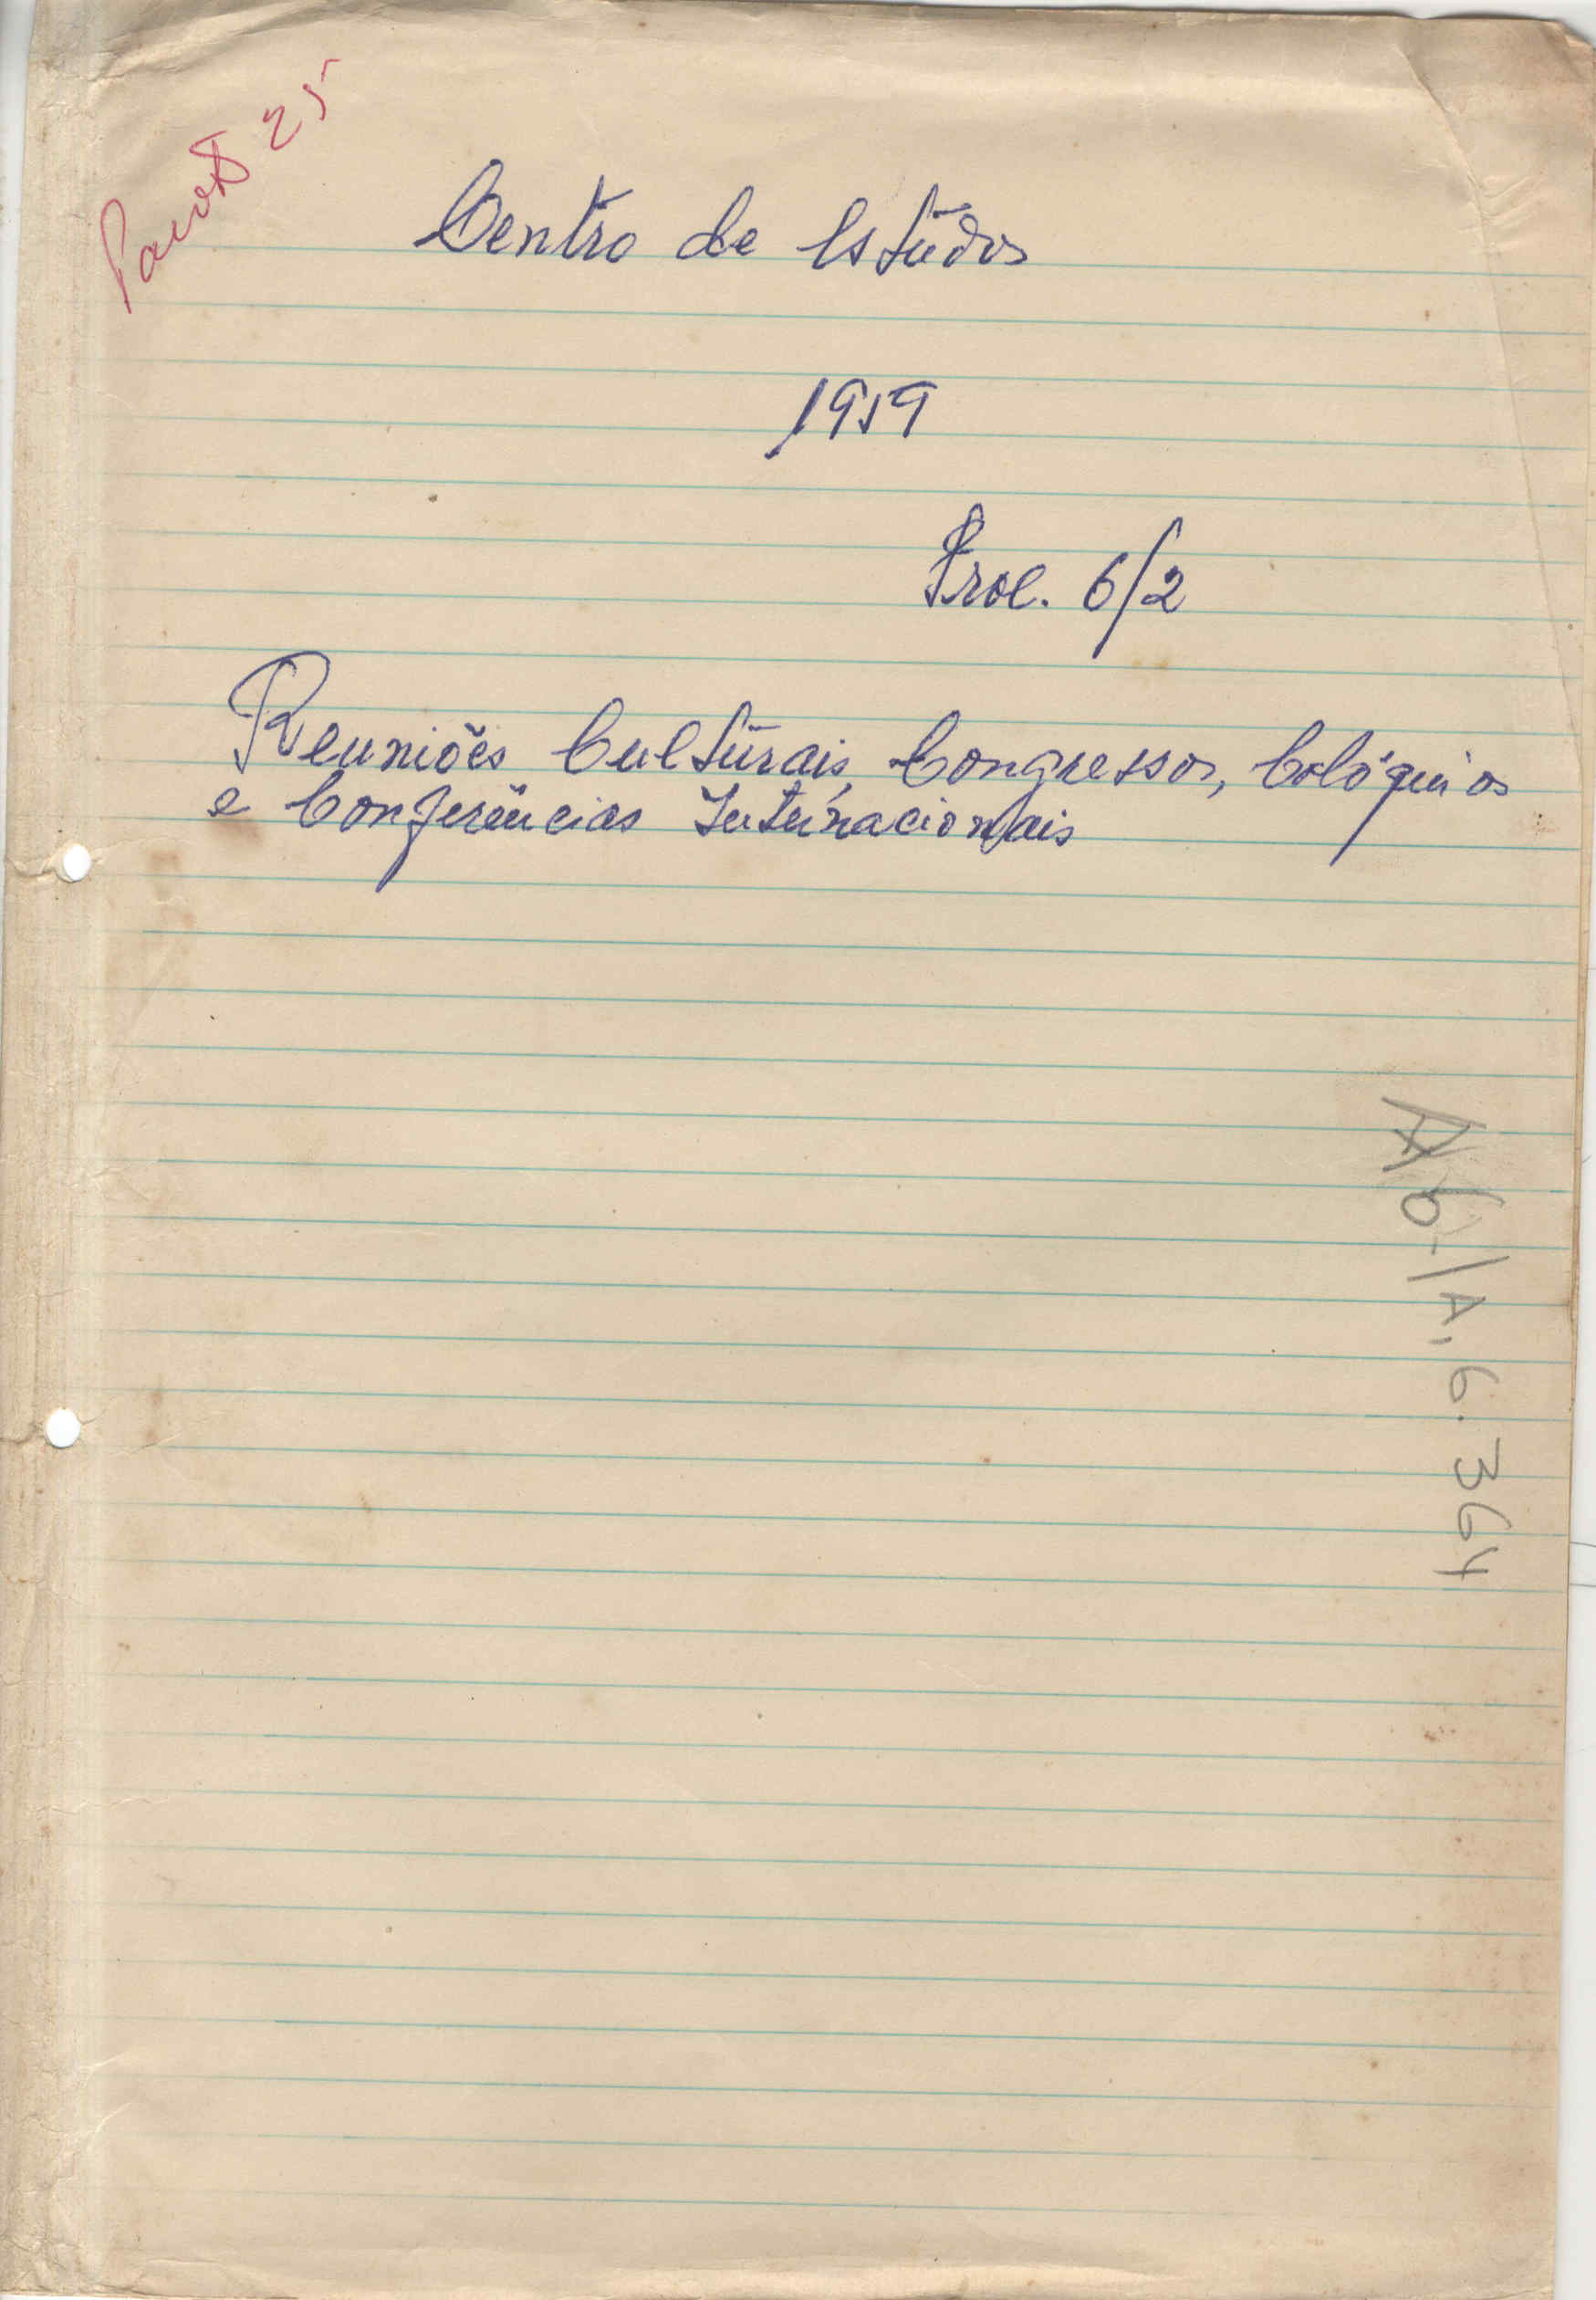 Pacote 25
Centro de Estudos
1959
Proc. 6/2
Reuniões Culturais, Congressos, Colóquios
e Conferências Internacionais
A6-1A, 6. 364